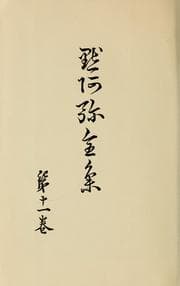 黙阿弥全集
第十一巻